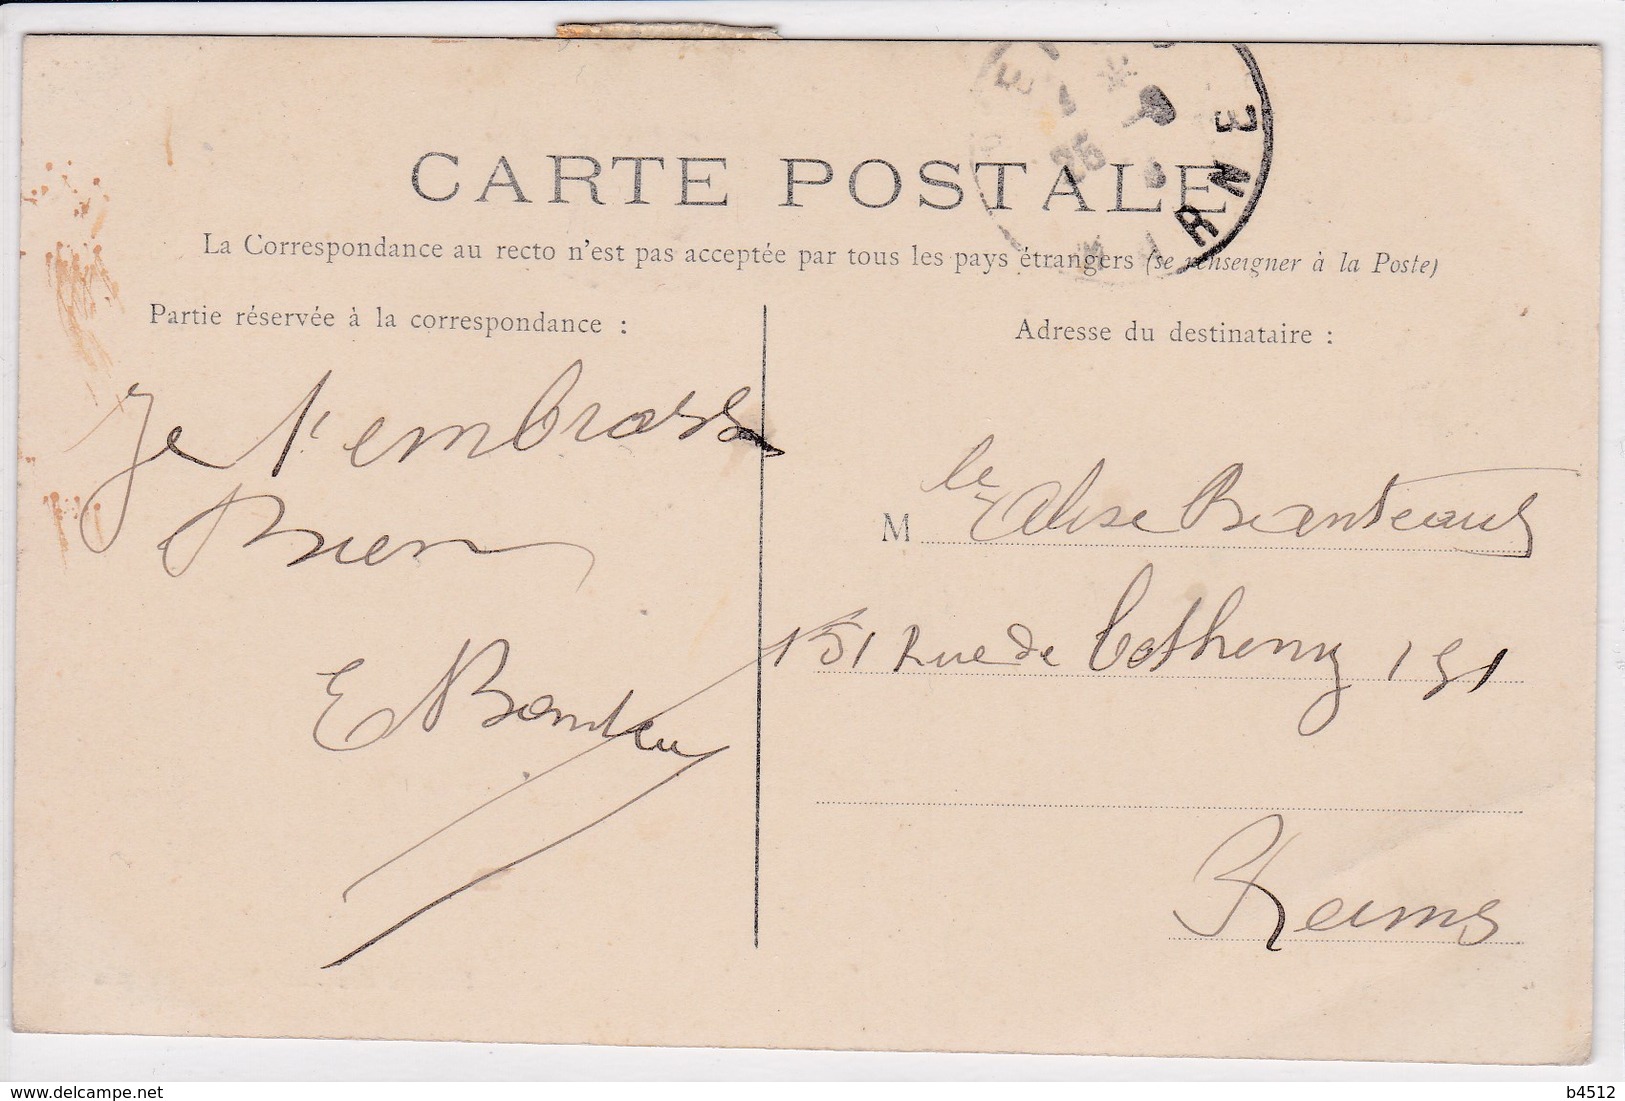 CARTE POSTALE
RNE
25
La Correspondance au recto n'est pas acceptée par tous les pays étrangers (se renseigner à la Poste)
Partie réservée à la correspondance :
Je t'embrasse
Bien
E Banteau
Adresse du destinataire :
M le Elise Banteaux
151 Rue de Betheny 151
Reims
b4512